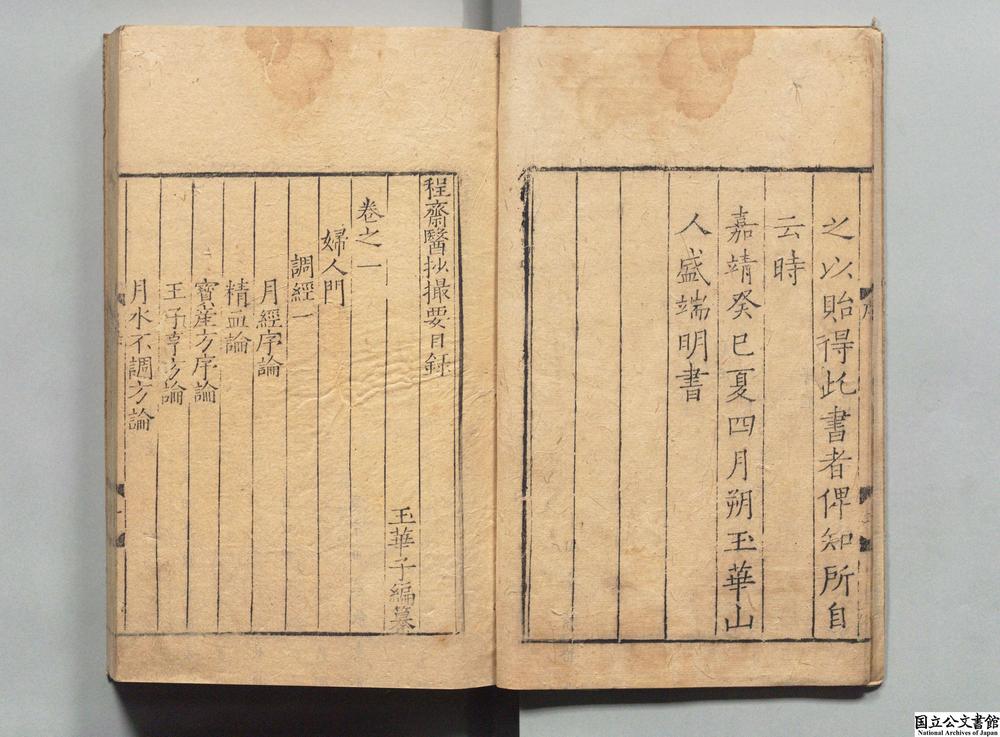 之以貽得此書者俾知所自
云時
嘉靖癸巳夏四月朔玉華山
人盛端明書
程齋醫抄撮要目録
玉華子編纂
卷之一
婦人門
調經一
月經序論
精血論
寶產方序論
王子亨方論
月水不調方論
国立公文書館
National Archives of Japan